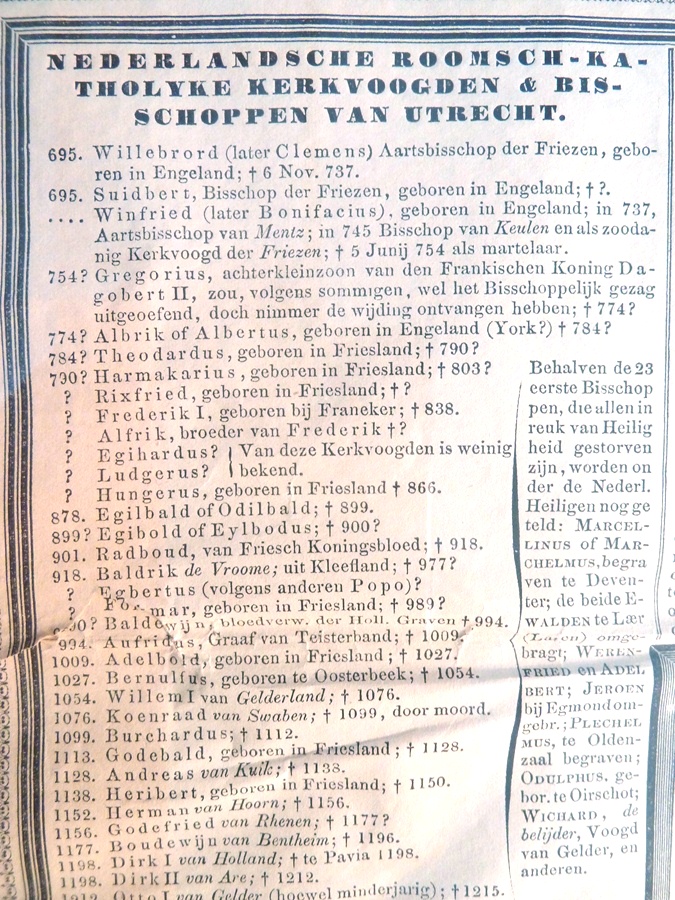 NEDERLANDSCHE ROOMSCH-KA-
THOLYKE KERKVOOGDEN & BIS-
SCHOPPEN VAN UTRECHT.
695. Willebrord (later Clemens) Aartsbisschop der Friezen, gebo-
ren in Engeland; † 6 Nov. 737.
695. Suidbert, Bisschop der Friezen, geboren in Engeland; † ?.
.... Winfried (later Bonifacius), geboren in Engeland; in 737,
Aartsbisschop van Mentz; in 745 Bisschop van Keulen en als zooda-
nig Kerkvoogd der Friezen; † 5 Junij 754 als martelaar.
754? Gregorius, achterkleinzoon van den Frankischen Koning Da-
gobert II, zou, volgens sommigen, wel het Bisschoppelijk gezag
uitgeoefend, doch nimmer de wijding ontvangen hebben; † 774?
774? Albrik of Albertus, geboren in Engeland (York?) † 784?
784? Theodardus, geboren in Friesland; † 790?
790? Harmakarius, geboren in Friesland; † 803?
? Rixfried, geboren in Friesland; † ?
? Frederik I, geboren bij Franeker; † 838.
? Alfrik, broeder van Frederik † ?
? Egihardus? } Van deze Kerkvoogden is weinig
? Ludgerus? } bekend.
? Hungerus, geboren in Friesland † 866.
878. Egilbald of Odilbald; † 899.
899? Egibold of Eylbodus; † 900?
901. Radboud, van Friesch Koningsbloed; † 918.
918. Baldrik de Vroome; uit Kleefland; † 977?
? Egbertus (volgens anderen Popo)?
? mar, geboren in Friesland; † 989?
Baldewijn; bloedverw. der Holl. Graven † 994.
994. Aufridus, Graaf van Teisterband; † 1009.
1009. Adelbold, geboren in Friesland; † 1027.
1027. Bernulfus, geboren te Oosterbeek; † 1054.
1054. Willem I van Gelderland; † 1076.
1076. Koenraad van Swaben; † 1099, door moord.
1099. Burchardus; † 1112.
1113. Godebald, geboren in Friesland; † 1128.
1128. Andreas van Kuik; † 1138.
1138. Heribert, geboren in Friesland; † 1150.
1152. Herman van Hoorn; † 1156.
1156. Godefried van Rhenen; † 1177?
1177. Boudewijn van Bentheim; † 1196.
1198. Dirk I van Holland; † te Pavia 1198.
1198. Dirk II van Are; † 1212.
1212. Otto I van Gelder (hoewel minderjarig); † 1215.
Behalven de 23
eerste Bisschop
pen, die allen in
reuk van Heilig
heid gestorven
zijn, worden on
der de Nederl.
Heiligen nog ge
teld: MARCEL-
LINUS of MAR-
CHELMUS, begra
ven te Deven-
ter; de beide E-
WALDEN te Lær
(Laren) omge-
bragt; WEREN-
FRIED en ADEL
BERT; JEROEN
bij Egmond om-
gebr.; PLECHEL
MUS, te Olden-
zaal begraven;
ODULPHUS. ge-
bor. te Oirschot;
WICHARD, de
belijder, Voogd
van Gelder, en
anderen.